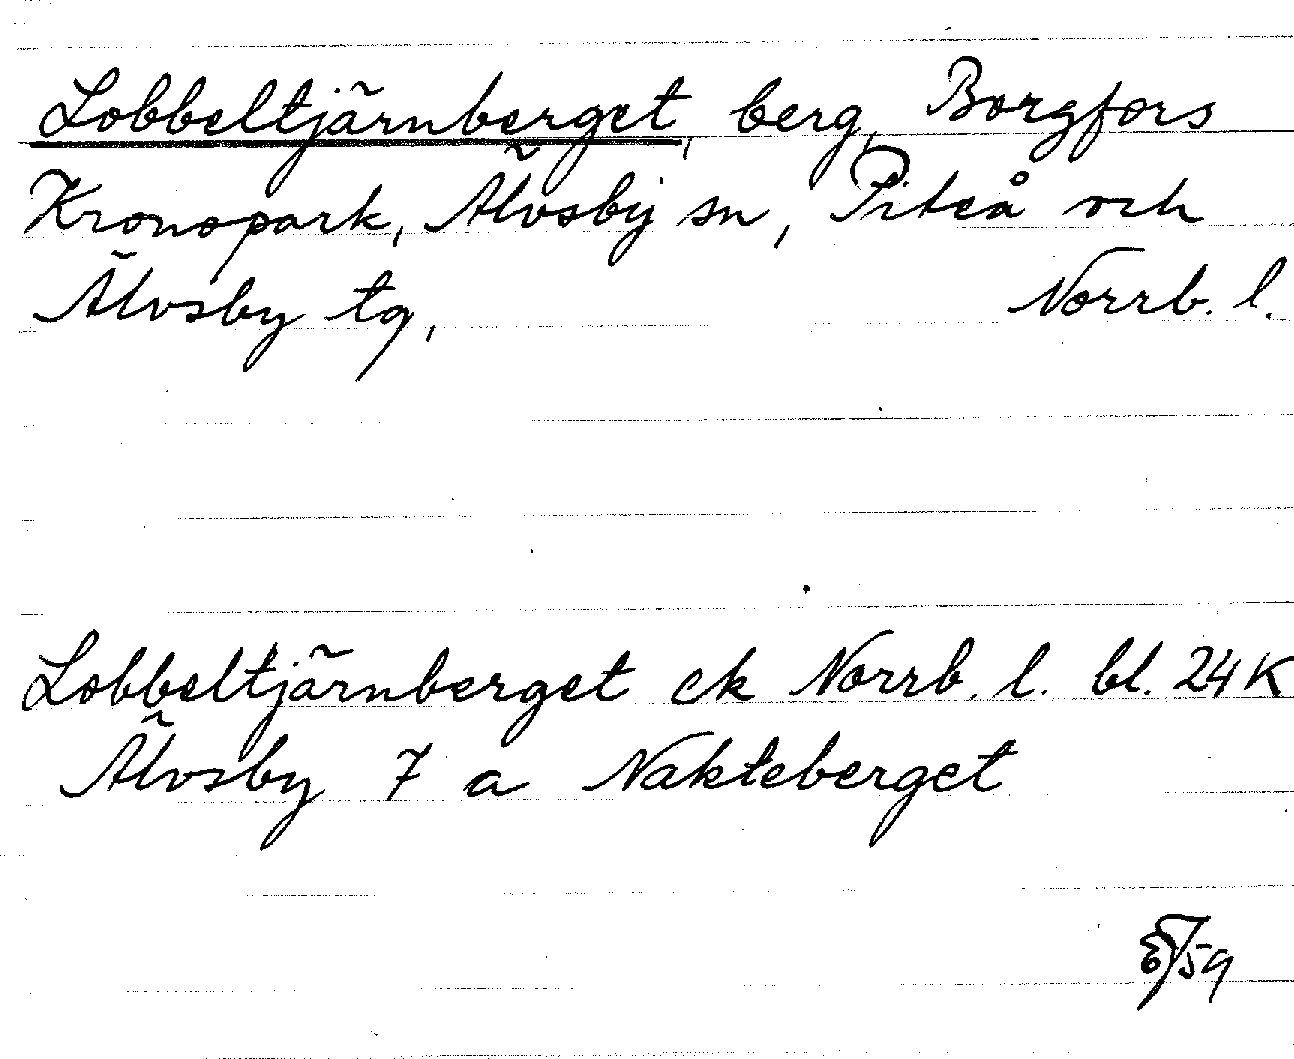 Lobbeltjärnberget, berg, Borgfors
Kronopark, Älvsby sn, Piteå och
Älvsby tg, Norrb. l.
Lobbeltjärnberget ek Norrb. l. bl. 24K
Älvsby 7 a Nakteberget